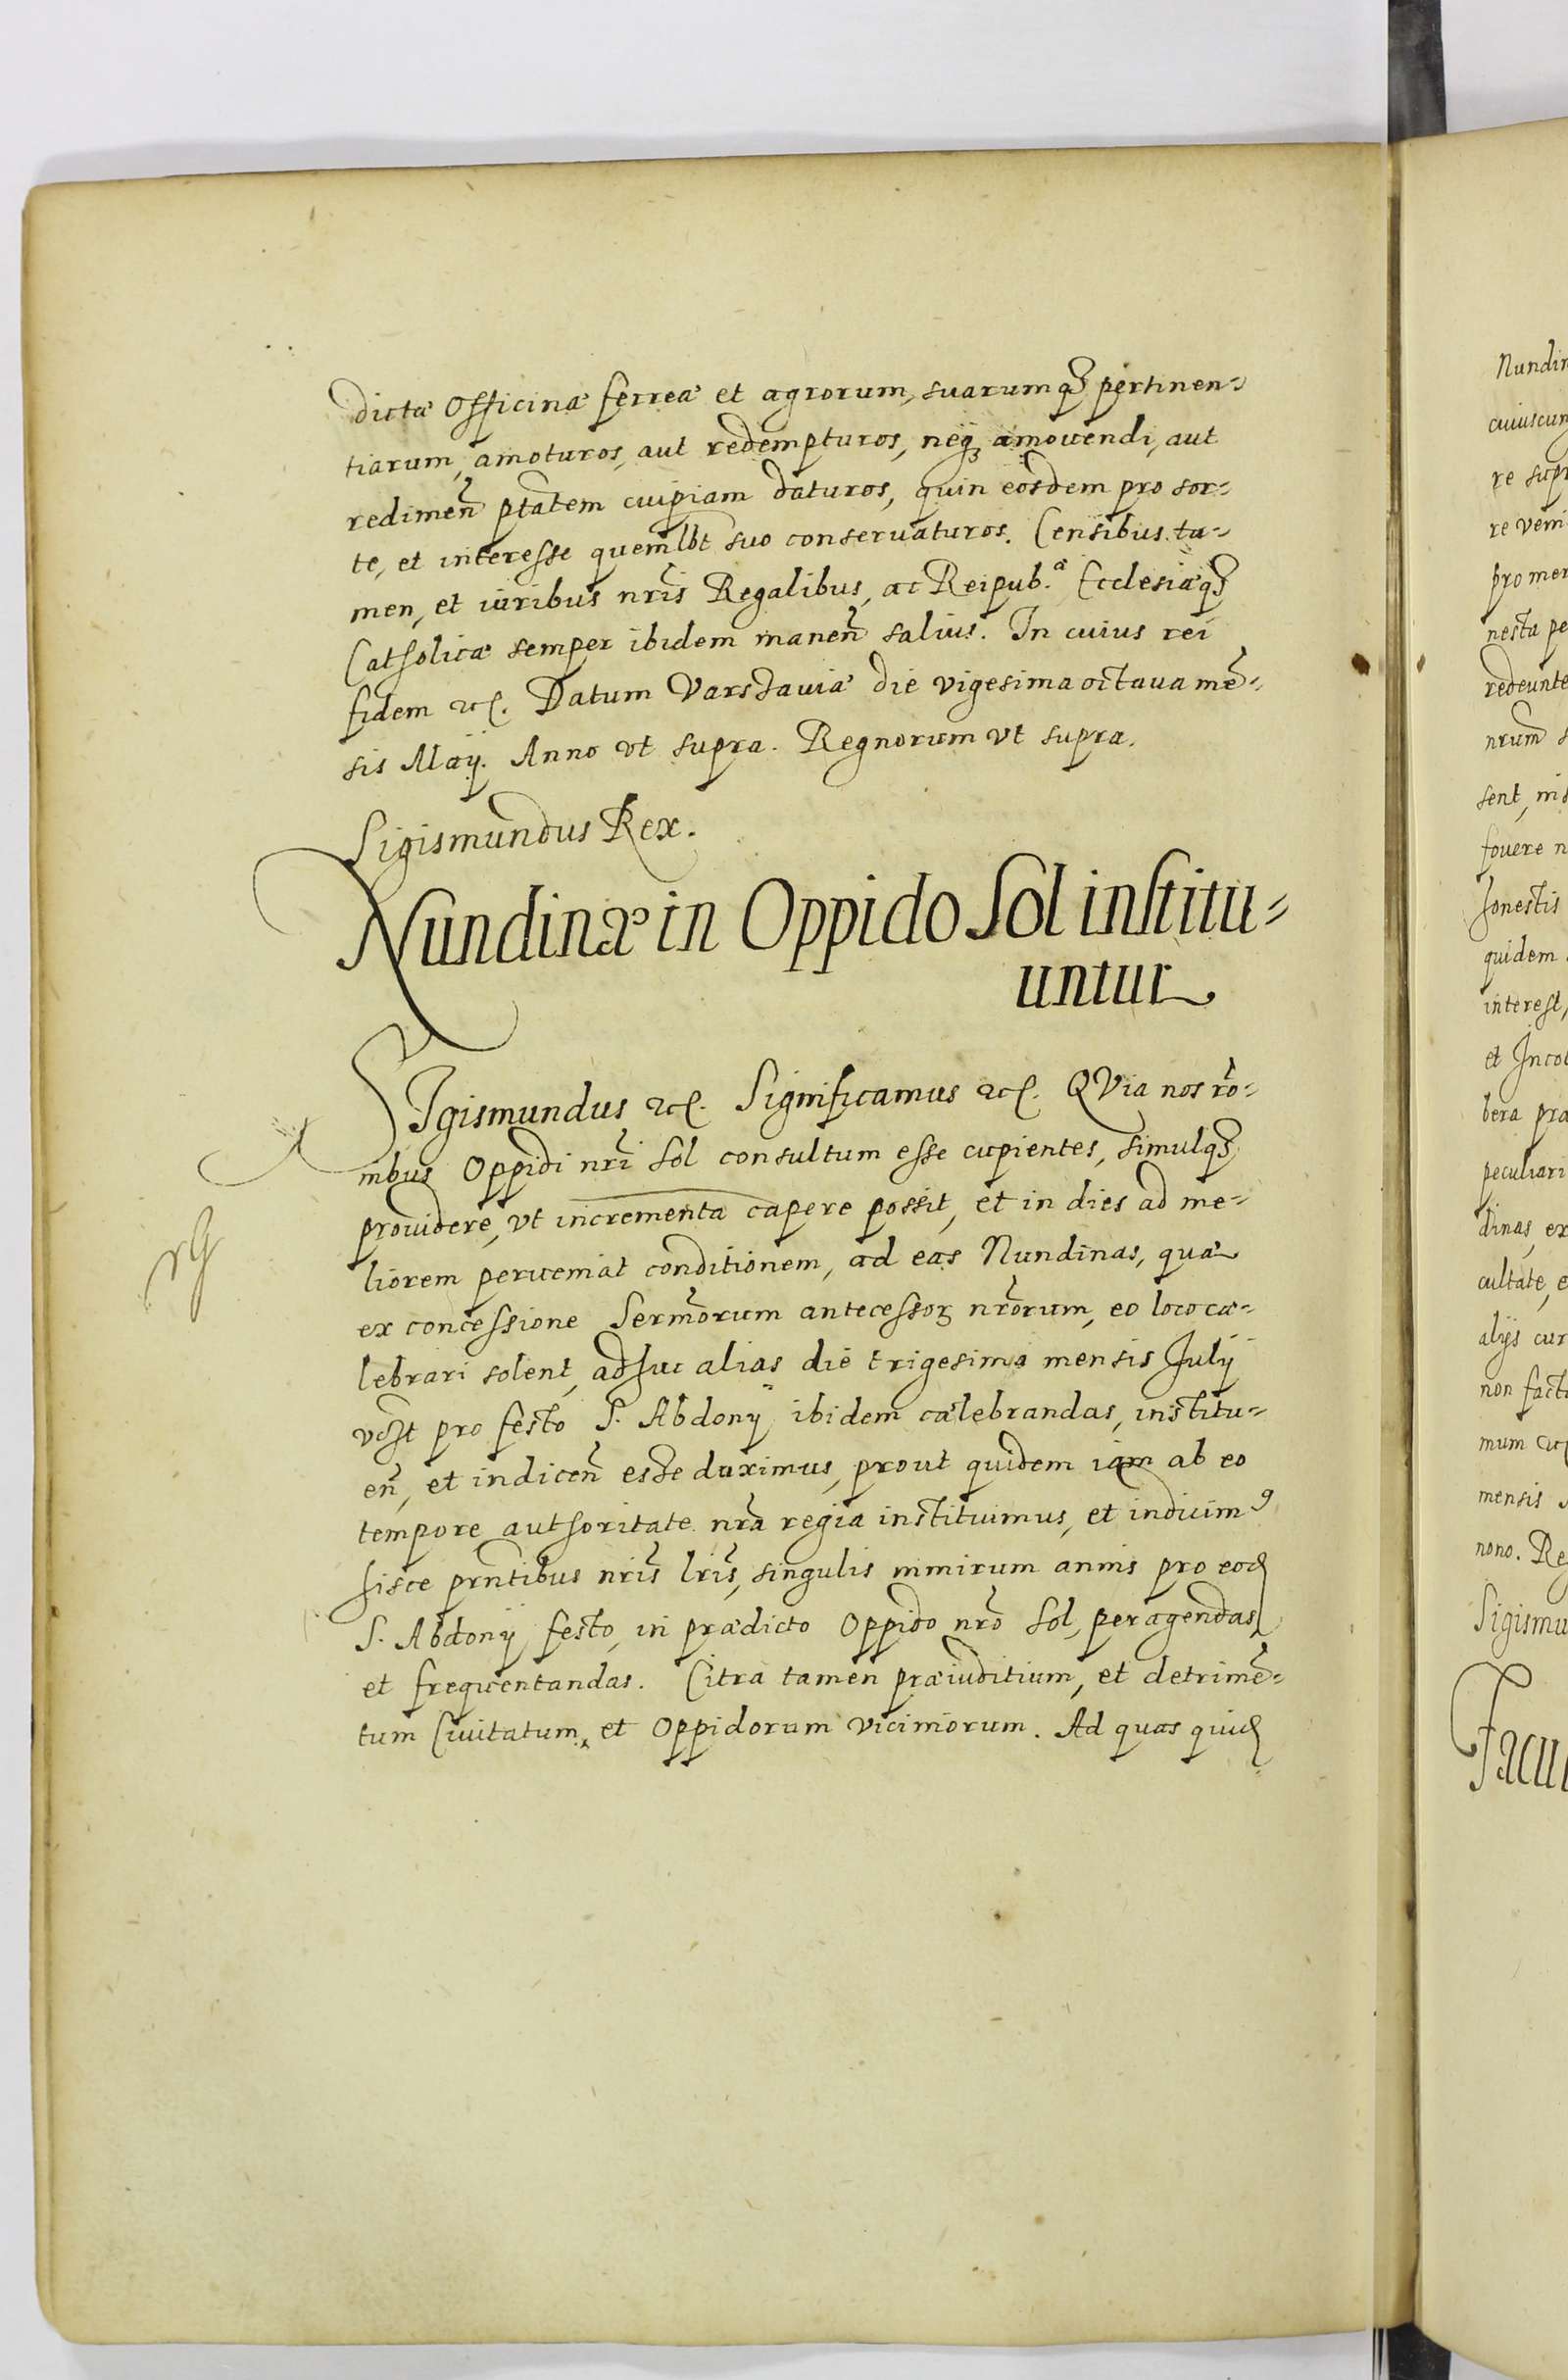 dictæ Officinæ ferreæ et agrorum, suarumq₃ pertinen-
tiarum, amoturos, aut redempturos, neq₃ amouendi, aut
redimen̄ ptātem cuipiam daturos, quin eosdem pro sor-
te, et interesse quemlbt suo conseruaturos. Censibus ta-
men, et iuribus nrīs Regalibus, ac Reipub.ᵃ Ecclesiæq₃
Catholicæ semper ibidem manen̄ saluis. In cuius rei
fidem etc. Datum Varschauiæ die vigesima octaua mē-
sis Maÿ. Anno vt supra. Regnorum vt supra.
Sigismundus Rex.
Nundinæ in Oppido Sol institu-
untur
SIgismundus etc. Significamus etc. QVia nos rō-
nibus Oppidi nrī Sol consultum esse cupientes, simulq₃
prouidere, vt incrementa capere possit, et in dies ad me-
liorem perueniat conditionem, ad eas Nundinas, quæ
ex concessione Sermōrum antecessoꝝ nrōrum, eo loco cæ-
lebrari solent, adhuc alias die trigesima mensis Julÿ
vdlt pro festo S. Abdonÿ ibidem cælebrandas, institu-
en̄, et indicen̄ esse duximus, prout quidem iam ab eo
tempore authoritate nrā regia instituimus, et indicimꝰ
hisce prn̄tibus nrīs lrīs, singulis nimirum annis pro eod
S. Abdonÿ festo, in prædicto Oppido nrō Sol, peragendas,
et frequentandas. Citra tamen præiuditium, et detrimē-
tum Ciuitatum, et Oppidorum vicinorum. Ad quas quid
Nundin
cuiuscun
re supr
re veni
pro mer
nesta pe
redeunte
nrum s
sent, nis
fouere n
honestis
quidem
interest,
et Incol
bera pra
peculiari
dinas, ex
cultate, e
alijs cur
non fact
mum etc
mensis
nono. Re
Sigismu
Facul